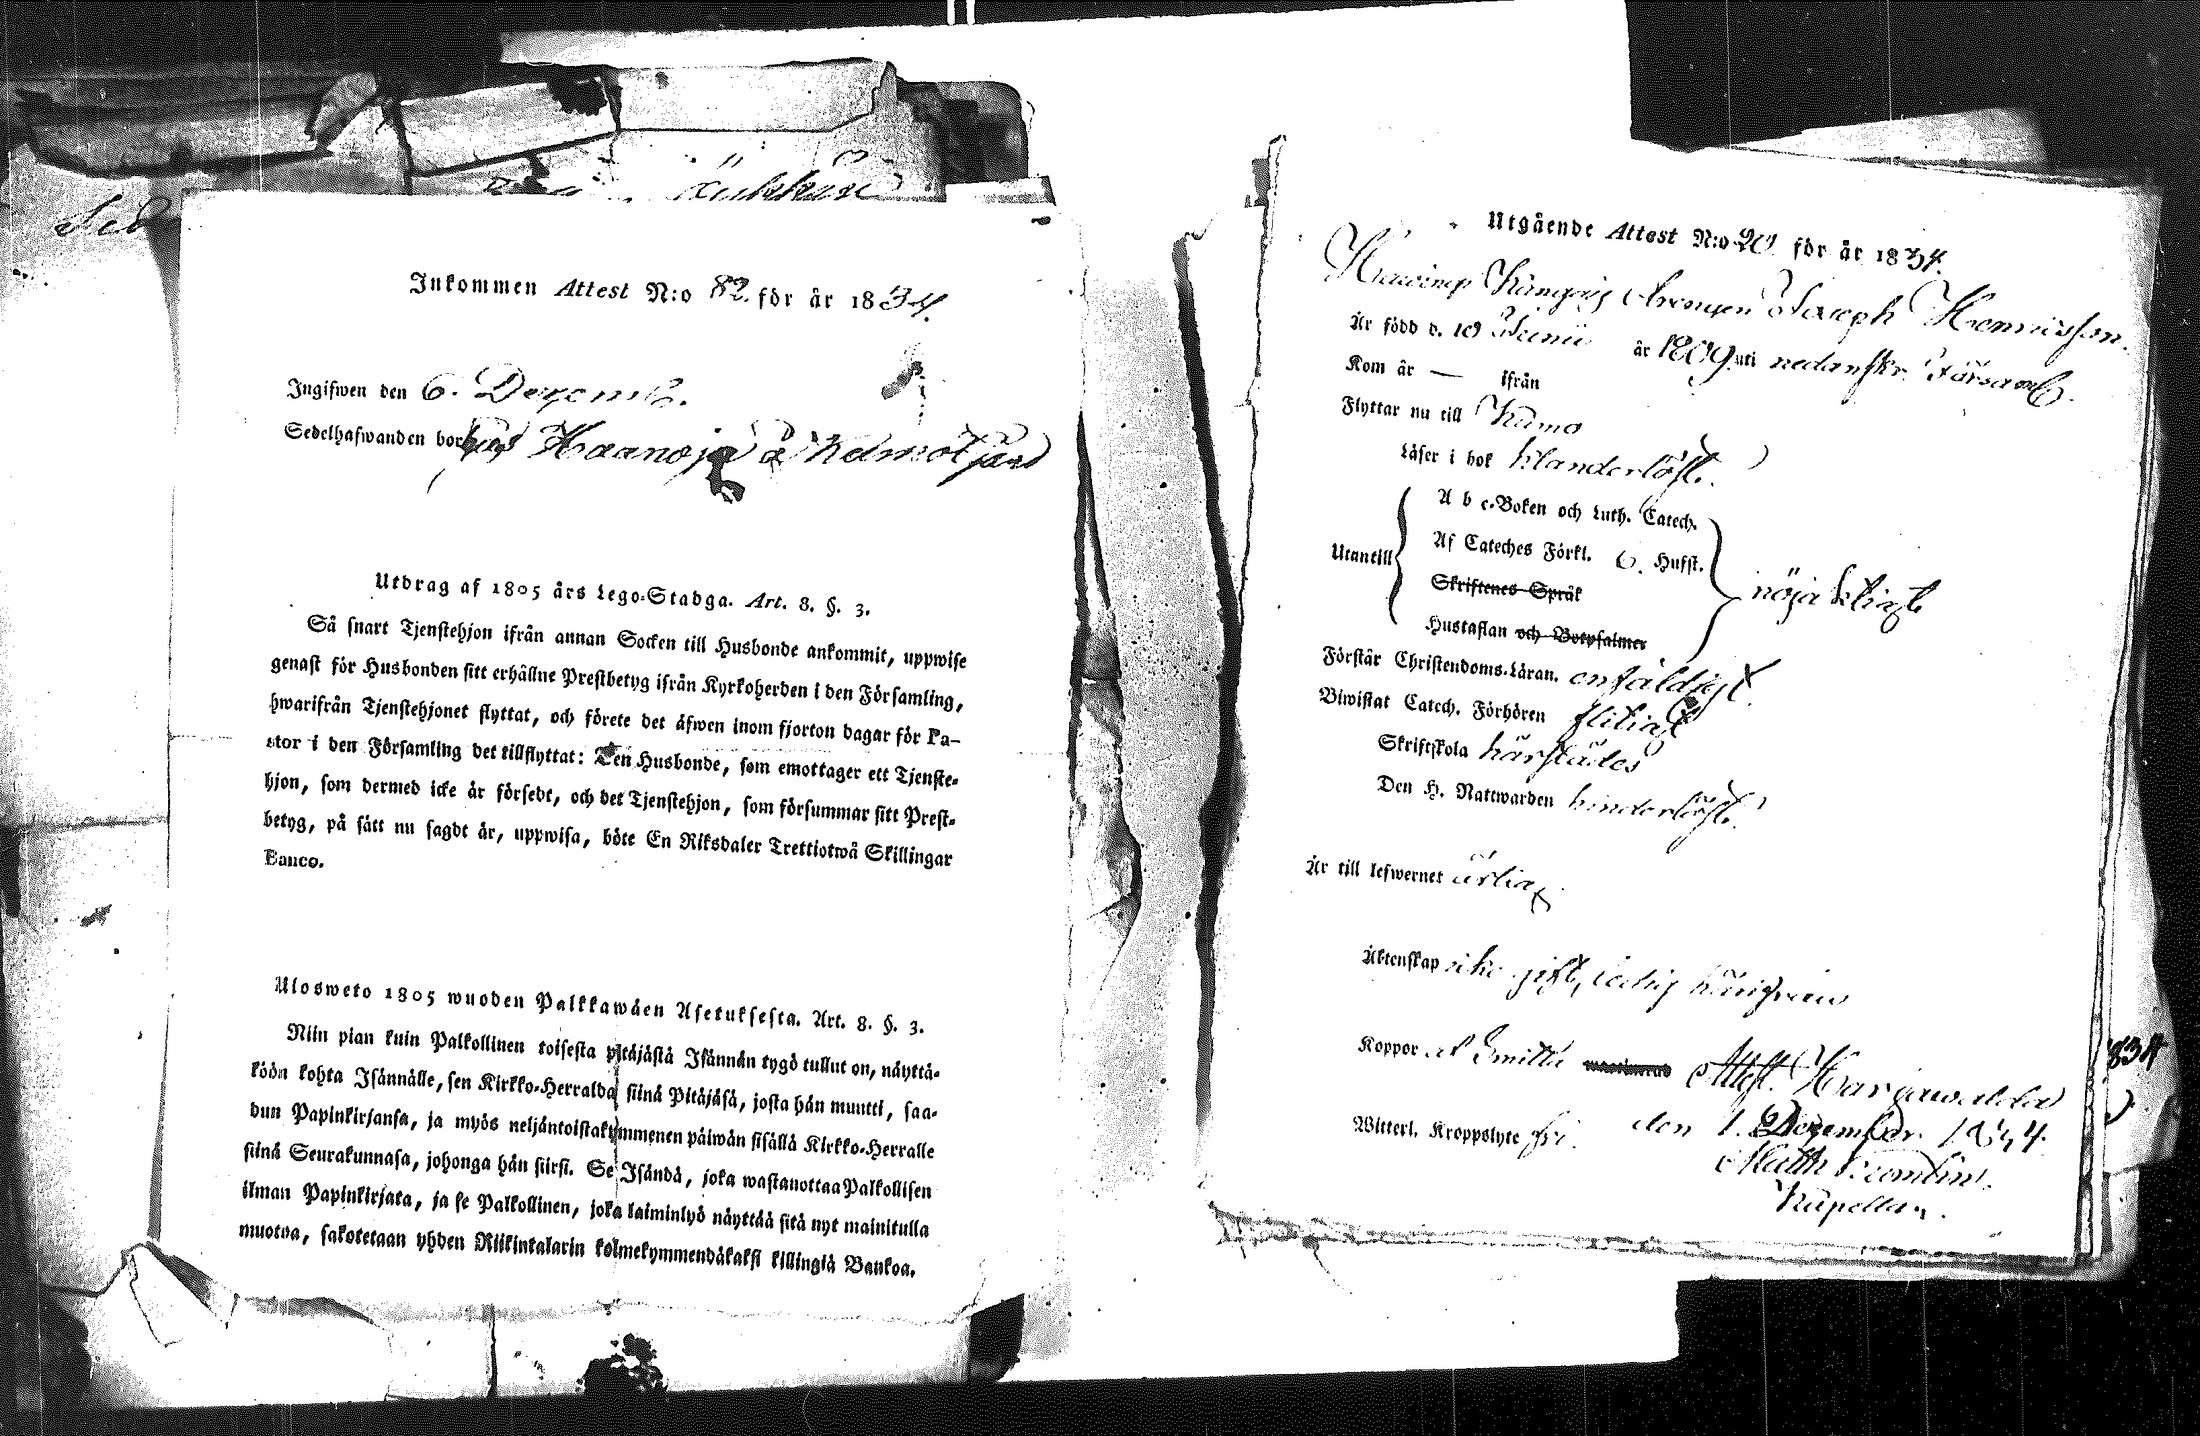 Inkommen Attest N:o 82. för år 1834.
Ingifwen den 6. Decemb.
Sedelhafwanden bor hos Haanoja å
Utdrag af 1805 års Lego-Stadga. Art. 8. §. 3.
Så snart Tjenstehjon ifrån annan Socken till Husbonde ankommit, uppwise
genast för Husbonden sitt erhållne Prestbetyg ifrån Kyrkoherden i den Församling,
hwarifrån Tjenstehjonet flyttat, och förete det äfwen inom fjorton dagar för Pa-
stor i den Församling det tillflyttat: Den Husbonde, som emottager ett Tjenste-
hjon, som dermed icke är försedt, och det Tjenstehjon, som försummar sitt Prest-
betyg, på sätt nu sagdt är, uppwisa, böte En Riksdaler Trettiotwå Skillingar
Banco.
Ulosweto 1805 wuoden Palkkawäen Asetuksesta. Art. 8. §. 3.
Niin pian kuin Palkollinen toisesta pitäjästä Isännän tygö tullut on, näyttä-
köön kohta Isännälle, sen Kirkko-Herralda siinä Pitäjäsä, josta hän muutti, saa-
dun Papinkirjansa, ja myös neljäntoistakymmenen päiwän sisällä Kirkko-Herralle
siinä Seurakunnasa, johonga hän siirsi. Se Isändä, joka wastanottaa Palkollisen
ilman Papinkirjata, ja se Palkollinen, joka laiminlyö näyttää sitä nyt mainitulla
muotoa, sakotetaan yhden Riikintalarin kolmekymmendäkaksi killingiä Bankoa.
Utgående Attest N:o 20 för år 1834.
Drengen Joseph Henricsson.
Är född d. 10 Junii år 1809. uti nedanskr. Församl.
Kom år — ifrån
Flyttar nu till Kumo
Läser i bok klanderlöst.
A b c-Boken och Luth. Catech.
Utantill Af Cateches Förkl. 6. Hufst. nöjaktligt
Skriftenes Språk
Hustaflan och Botpsalmer
Förstår Christendoms-Läran. enfäldigt.
Biwistat Catech. Förhören flitigt
Skriftskola härstädes
Den H. Nattwarden hinderlöst.
Är till lefwernet ärlig.
Äktenskap icke gift, ledig härifrån
Koppor af Smitta waccinerad Attest. Harjawalda
Witterl. Kroppslyte fri. den 1. December 1834.
Matth.
Kapellan.
834